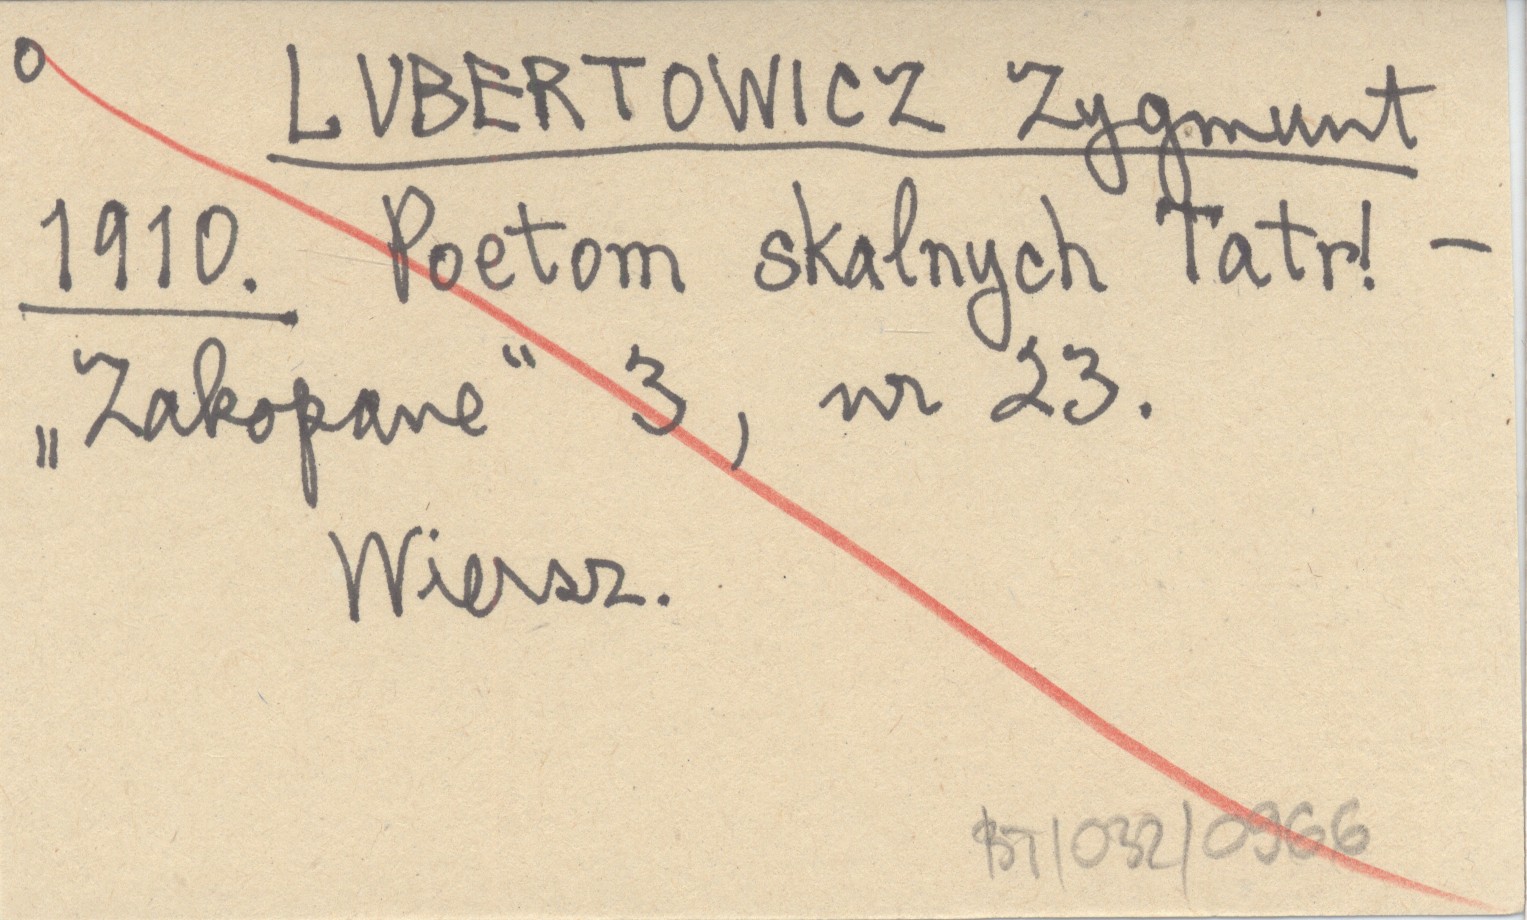 o LUBERTOWICZ Zygmunt
1910. Poetom skalnych Tatr! –
„Zakopane" 3, nr 23.
Wiersz.
BT/032/0966